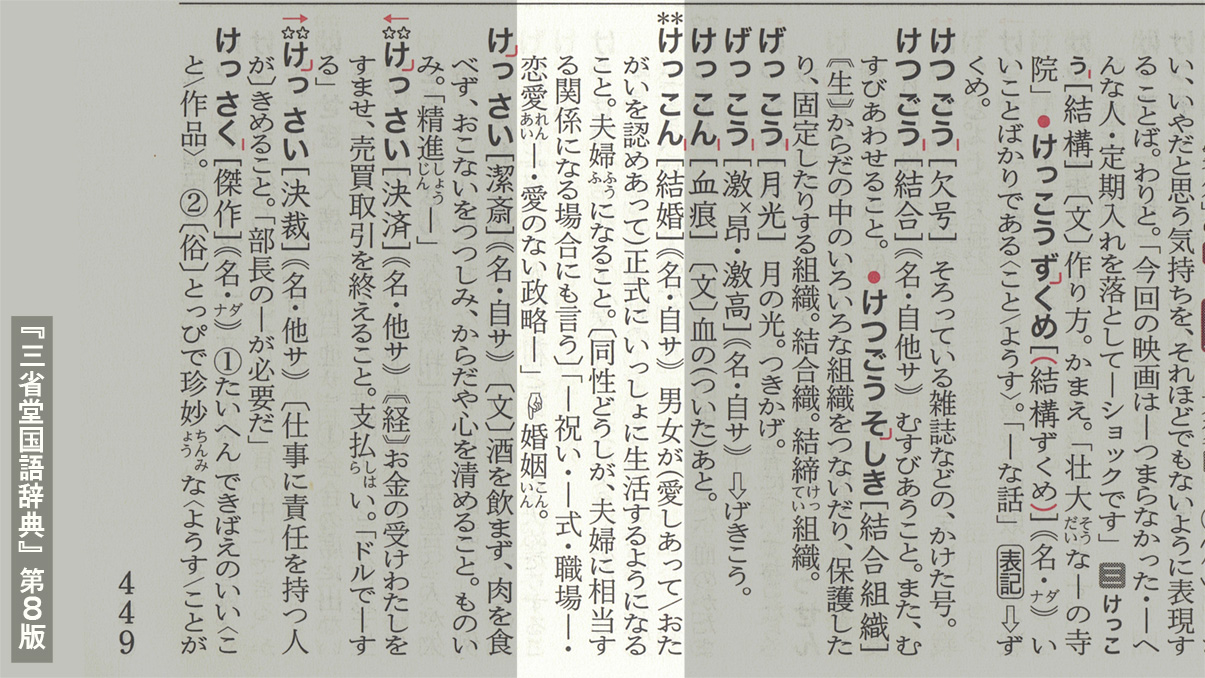 い、いやだと思う気持ちを、それほどでもないように表現す
る ことば。わりと。「今回の映画は―つまらなかった・―へ
んな人・定期入れを落として―ショックです」 三 けっこ
う[結構]〔文〕作り方。かまえ。「壮大そうだいな―の寺
院」 ●けっこうずくめ[(結構ずくめ)]《名・ナダ》 い
いことばかりである〈こと/ようす〉。「―な話」 表記⇩ず
くめ。
けつごう[欠号] そろっている雑誌などの、かけた号。
けつごう[結合]《名・自他サ》 むすびあうこと。また、む
すびあわせること。 ●けつごうそしき[結合組織]
《生》からだの中のいろいろな組織をつないだり、保護した
り、固定したりする組織。結合織。結締けってい組織。
げっこう[月光] 月の光。つきかげ。
げっこう[激×昂・激高]《名・自サ》 ⇩げきこう。
けっこん[血痕]〔文〕血の(ついた)あと。
**けっこん[結婚]《名・自サ》 男女が(愛しあって/おた
がいを認めあって)正式にいっしょに生活するようになる
こと。夫婦ふうふになること。〔同性どうしが、夫婦に相当す
る関係になる場合にも言う〕「―祝い・―式・職場―・
恋愛れんあい―・愛のない政略―」☞婚姻こんいん。
けっさい[潔斎]《名・自サ》〔文〕酒を飲まず、肉を食
べず、おこないをつつしみ、からだや心を清めること。ものい
み。「精進しょうじん―」
←☆☆けっさい[決済]《名・他サ》《経》お金の受けわたしを
すませ、売買取引を終えること。支払しはらい。「ドルで―す
る」
→☆☆けっさい[決裁]《名・他サ》〔仕事に責任を持つ人
が〕きめること。「部長の―が必要だ」
けっさく[傑作]《名・ナダ》 ①たいへんできばえのいい〈こ
と/作品〉。 ②〔俗〕とっぴで珍妙ちんみょうな〈ようす/ことが
449
『三省堂国語辞典』第8版